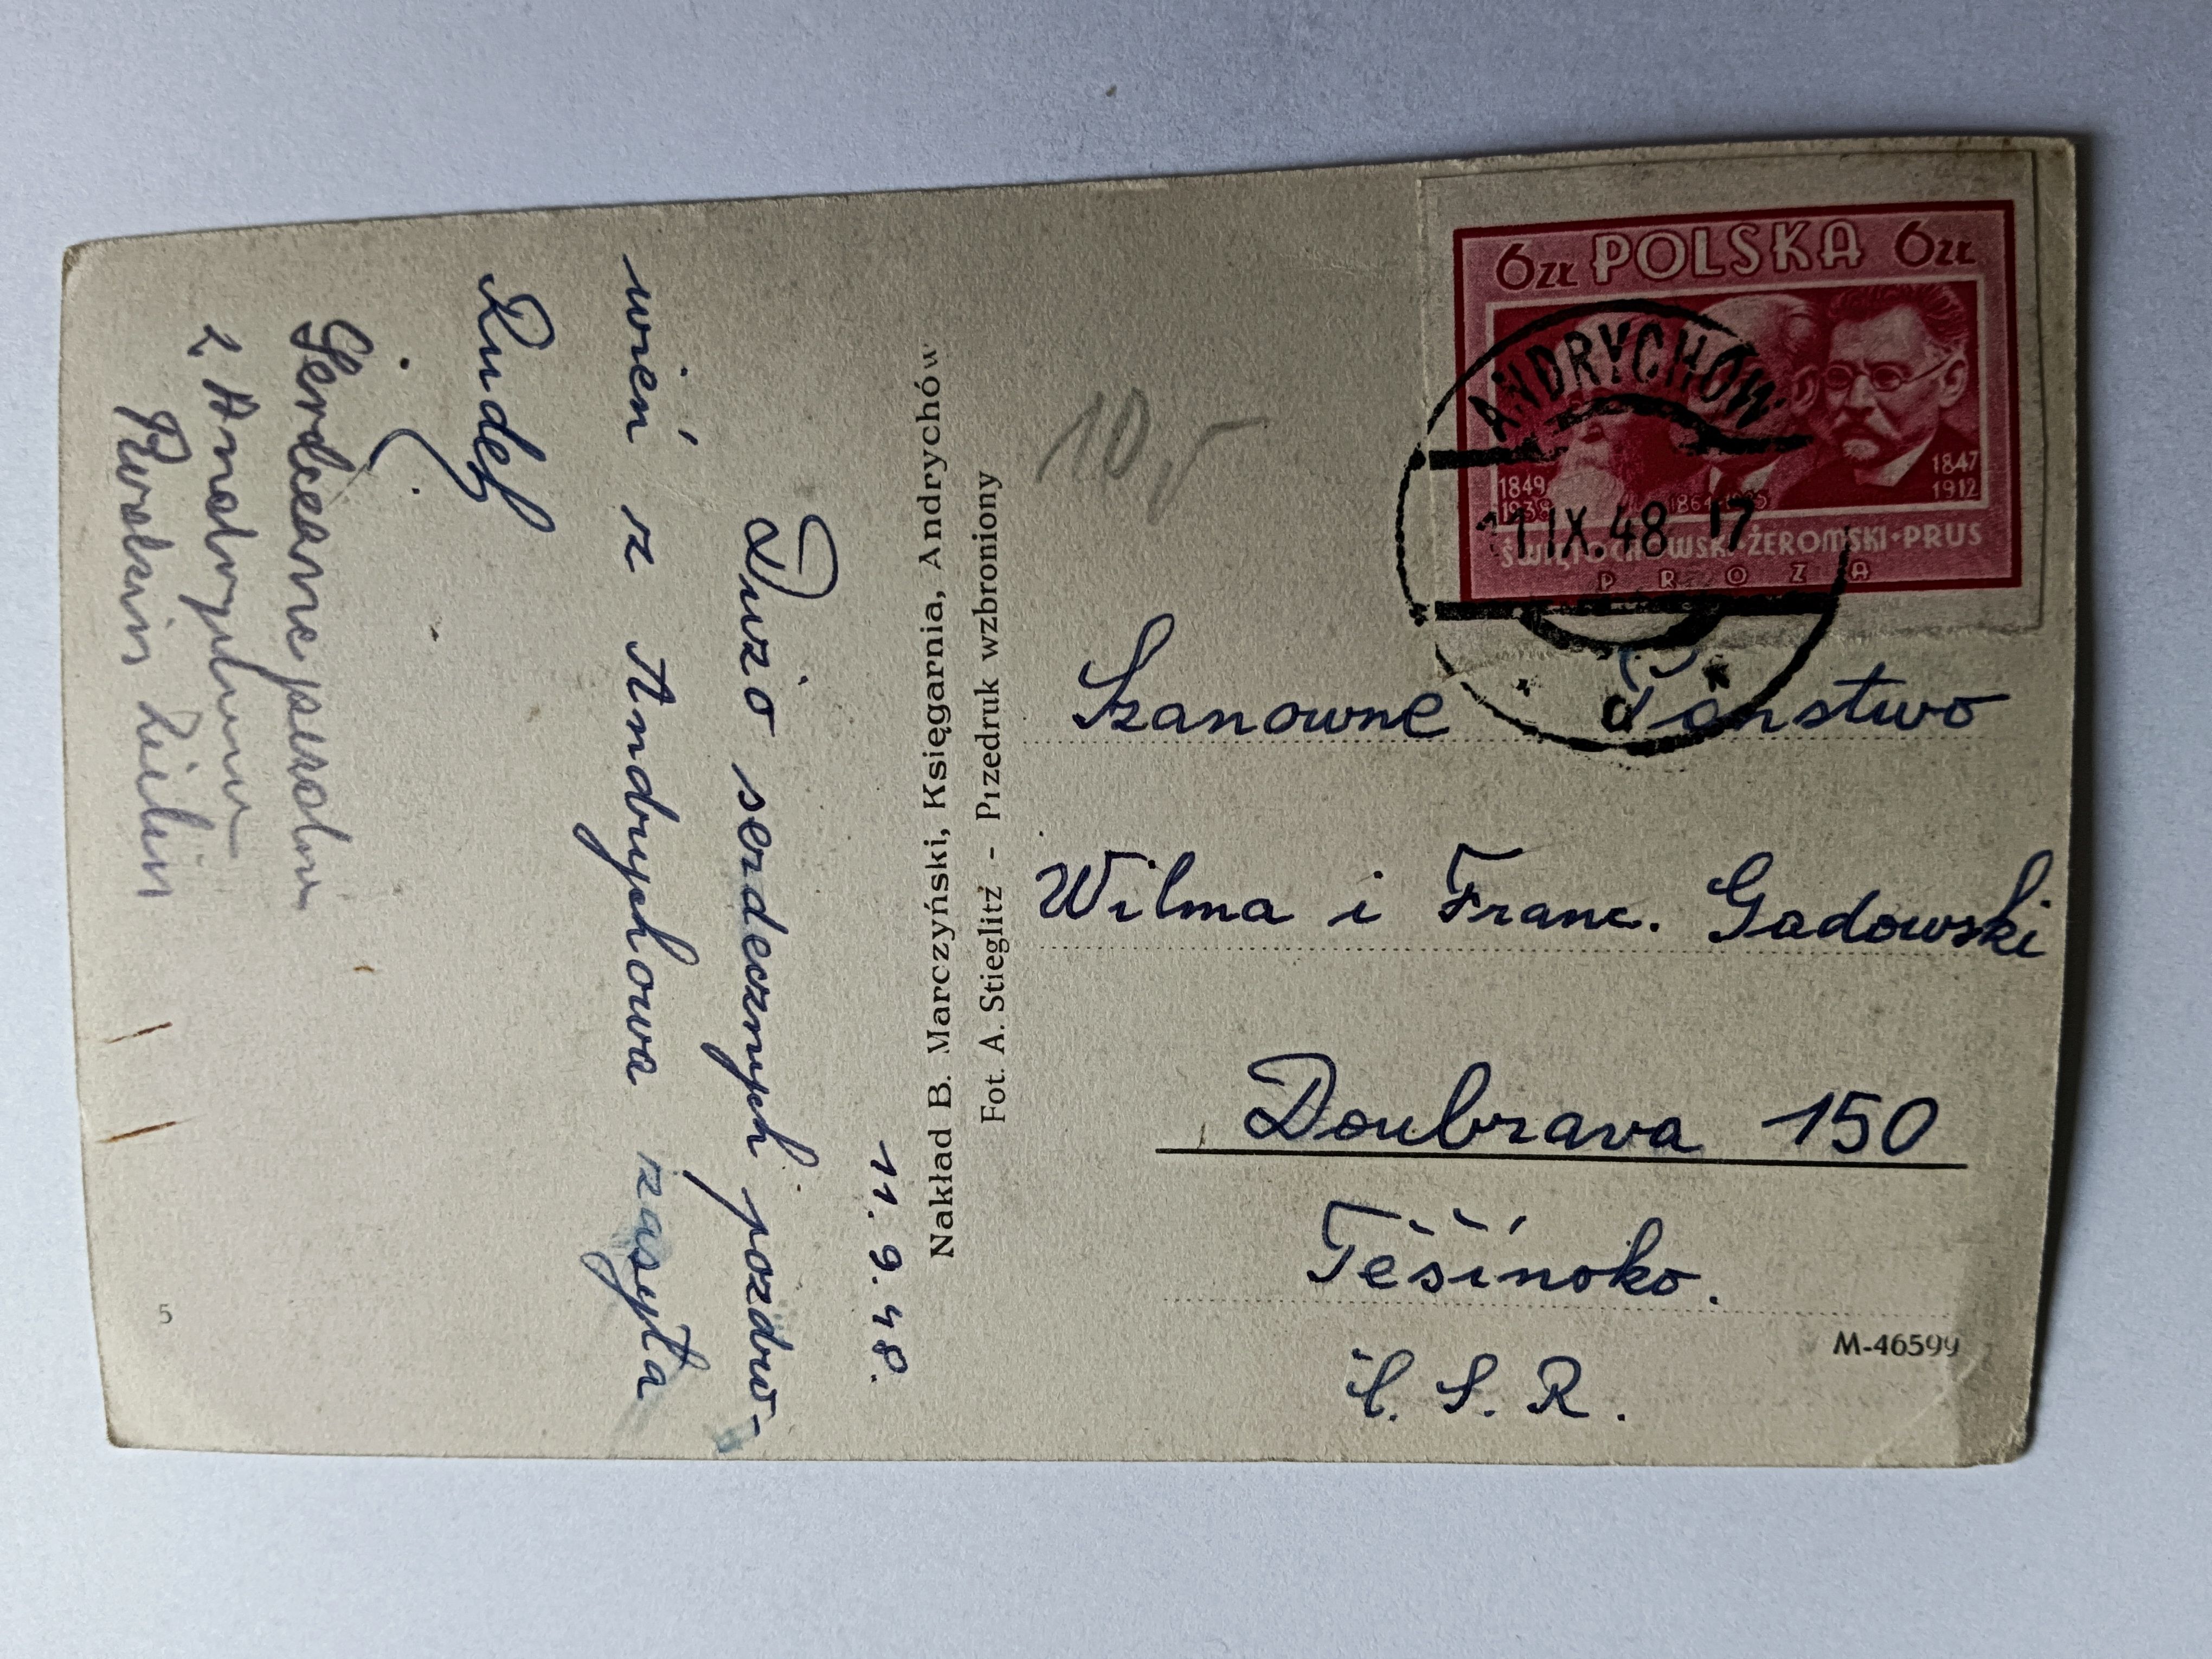 11. 9. 48.
Dużo serdecznych pozdro-
wień z Andrychowa zasyła
Rudef
Serdeczne
z
5
Nakład B. Marczyński, Księgarnia, Andrychów
Fot. A. Stieglitz - Przedruk wzbroniony
10,-
6 ZŁ POLSKA 6 ZŁ
1849
1938
1864-1925
1847
1912
ŚWIĘTOCHOWSKI·ŻEROMSKI·PRUS
PROZA
ANDRYCHÓW
11 IX.48 17
d
Szanowne Państwo
Wilma i Franc. Gadowski
Doubrava 150
Těšínsko.
Č. S. R.
M-46599